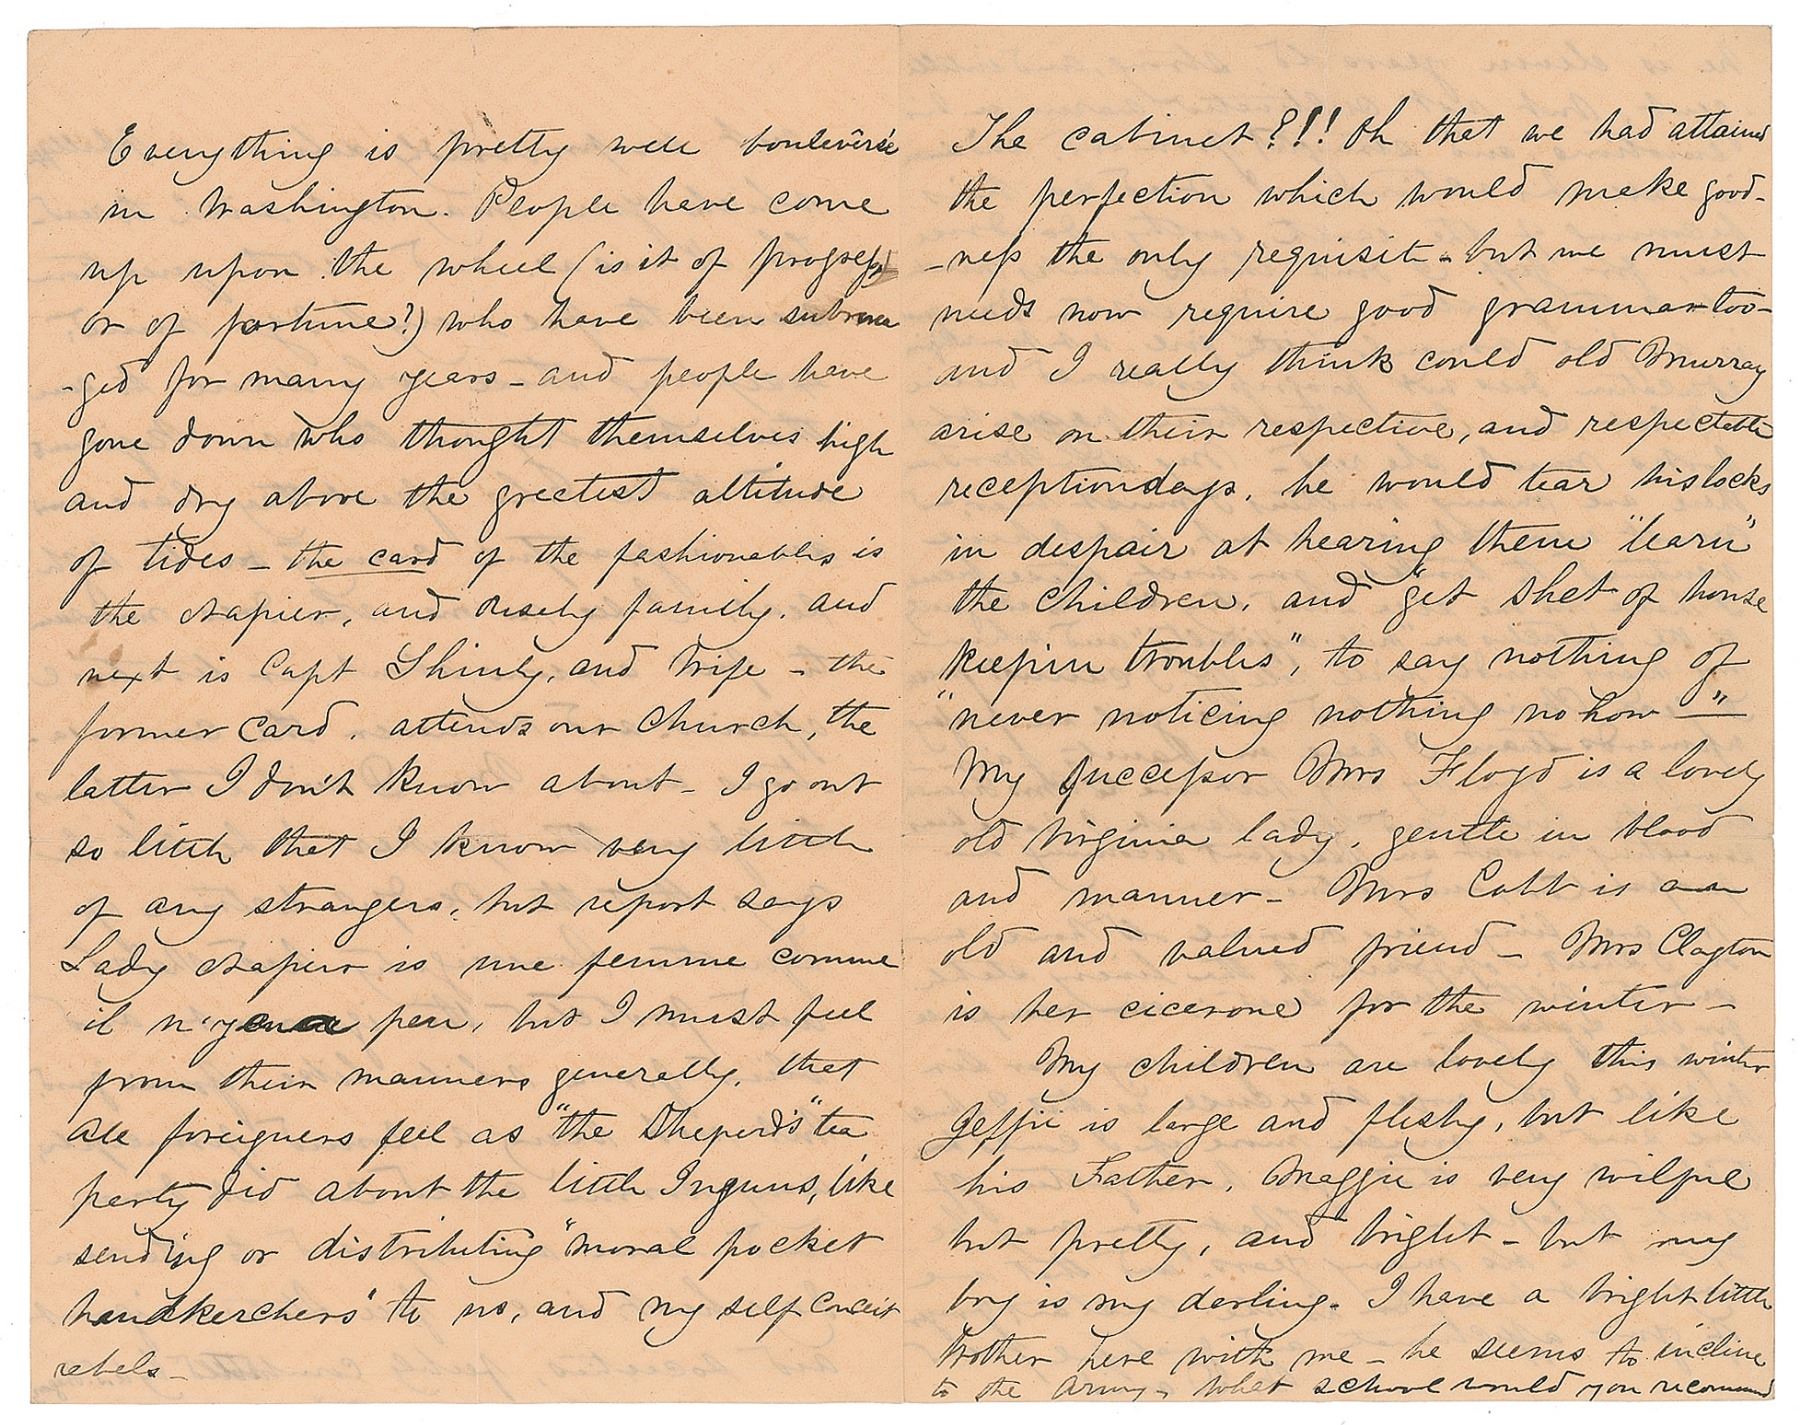 Everything is pretty well bouleversé
in Washington. People have come
up upon the wheel (is it of progress
or of fortune?) who have been subme
-ged for many years - and people have
gone down who thought themselves high
and dry above the greatest altitude
of tides - the card of the fashionables is
the Napier, and family. and
next is Capt and Wife - the
former card. attends our Church, the
latter I don't know about - I go out
so little that I know very little
of any strangers, but report says
Lady Napier is une femme comme
il n'y en a peu, but I must feel
from their manners generally, that
all foreigners feel as "the Sheperd's" tea
party did about the little Inguns, like
sending or distributing "moral pocket
handkerchers" to us, and my self conceit
rebels -
The cabinet?!!! Oh that we had attained
the perfection which would make good-
-ness the only requisit - but we must
needs now require good grammar too -
and I really think could old Murray
arise on their respective, and respectable
reception days, he would tear his locks
in despair at hearing them "learn"
the children, and "get shet of house
keepin troubles", to say nothing of
"never noticing nothing no how -"
My successor Mrs Floyd is a lovely
old Virginia lady, gentle in blood
and manner - Mrs Cobb is an
old and valued friend - Mrs Clayton
is her cicerone for the winter -
My children are lovely this winter
Jeffie is large and fleshy, but like
his Father, Maggie is very wilful
but pretty, and bright - but my
boy is my darling - I have a bright little
brother here with me - he seems to incline
to the Army, what school would you recommend